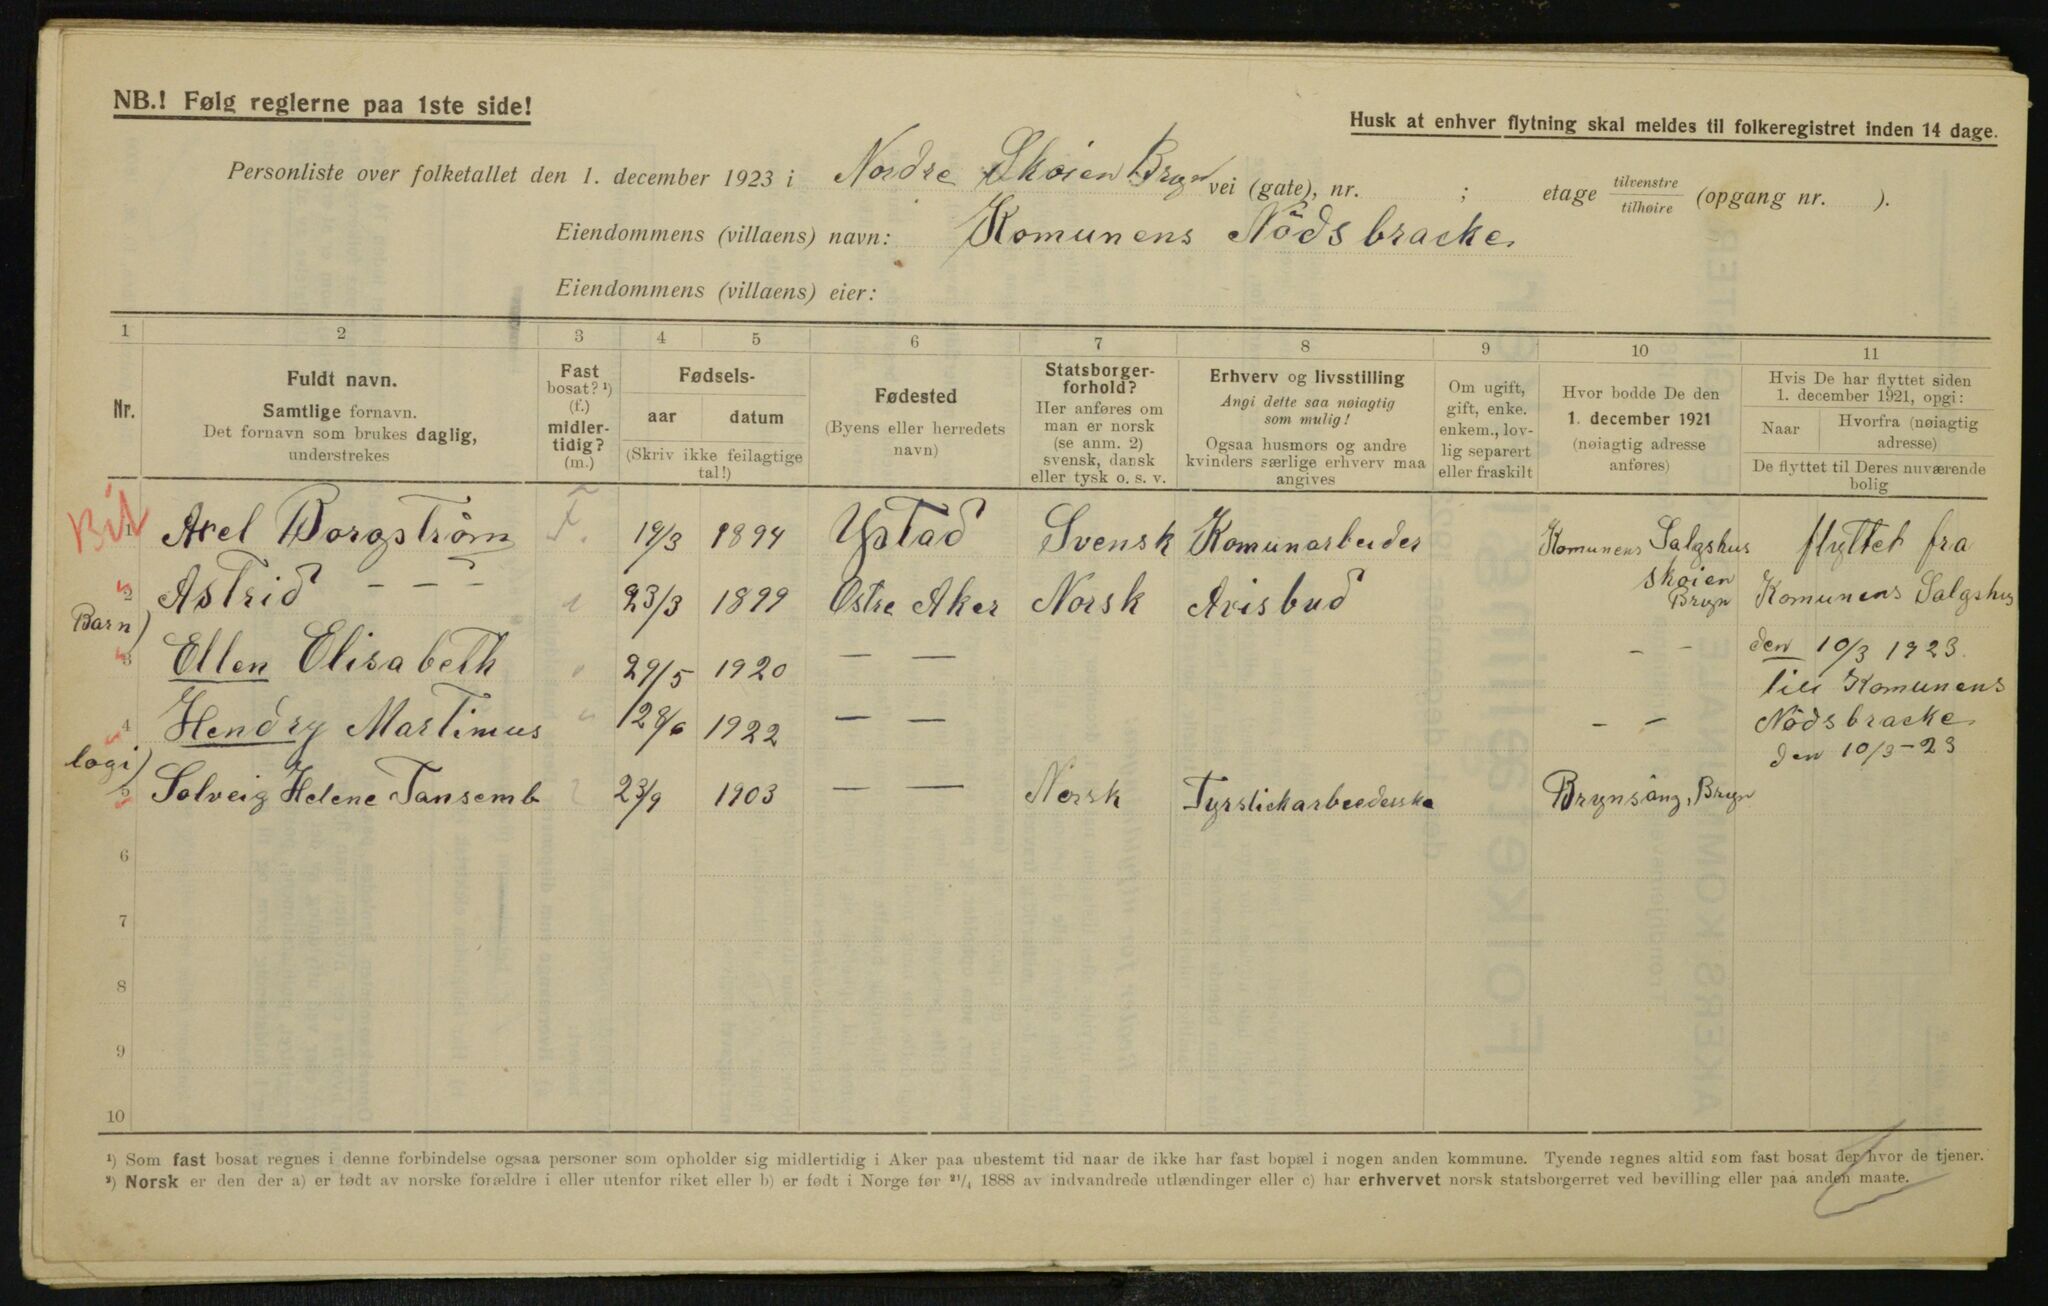 NB.! Følg reglerne paa 1ste side!
Husk at enhver flytning skal meldes til folkeregistret inden 14 dage.
Personliste over folketallet den 1. december 1923 i Nordre Skøien Bryn vei (gate), nr. ; etage tilvenstre/tilhøire (opgang nr. ).
Eiendommens (villaens) navn: Komunens Nödsbracke
Eiendommens (villaens) eier:
1 2 3 4 5 6 7 8 9 10 11
Nr.
Fuldt navn.
Samtlige fornavn.
Det fornavn som brukes daglig,
understrekes
Fast
bosat? ¹)
(f.)
midler-
tidig?
(m.)
Fødsels-
aar datum
(Skriv ikke feilagtige
tal!)
Fødested
(Byens eller herredets
navn)
Statsborger-
forhold?
Her anføres om
man er norsk
(se anm. 2)
svensk, dansk
eller tysk o. s. v.
Erhverv og livsstilling
Angi dette saa nøiagtig
som mulig!
Ogsaa husmors og andre
kvinders særlige erhverv maa
angives
Om ugift,
gift, enke.
enkem., lov-
lig separert
eller fraskilt
Hvor bodde De den
1. december 1921
(nøiagtig adresse
anføres)
Hvis De har flyttet siden
1. december 1921, opgi:
Naar Hvorfra (nøiagtig
adresse)
De flyttet til Deres nuværende
bolig
1 Axel Borgström F. 19/3 1894 Ystad Svensk Komunarbeider Komunens Salgshus flyttet fra
Skøien
2 Astrid — — — 23/3 1899 Østre Aker Norsk Avisbud Bryn Komunens Salgshus
Barn)
3 Ellen Elisabeth 29/5 1920 — — — — den 10/3 1923.
till Komunens
4 Hendry Martinus 128/6 1922 — — — — Nödsbracke
den 10/3-23
logi)
5 Solveig Helene Tansemb 23/9 1903 — — Norsk Fyrstickarbeederske Brynsäng, Bryn
6
7
8
9
10
¹) Som fast bosat regnes i denne forbindelse ogsaa personer som opholder sig midlertidig i Aker paa ubestemt tid naar de ikke har fast bopæl i nogen anden kommune. Tyende regnes altid som fast bosat der hvor de tjener.
²) Norsk er den der a) er født av norske forældre i eller utenfor riket eller b) er født i Norge før 21/4 1888 av indvandrede utlændinger eller c) har erhvervet norsk statsborgerret ved bevilling eller paa anden maate.